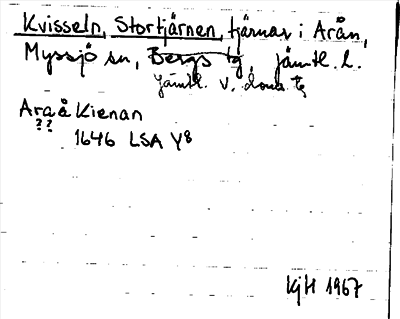 Kvisseln, Stortjärnen, tjärnar i Arån,
Myssjö sn, Bergs tg, Jämtl. l.
Jämtl. v. doms. tg
Araå Kienan
? ?
1646 LSA Y8
KjH 1967